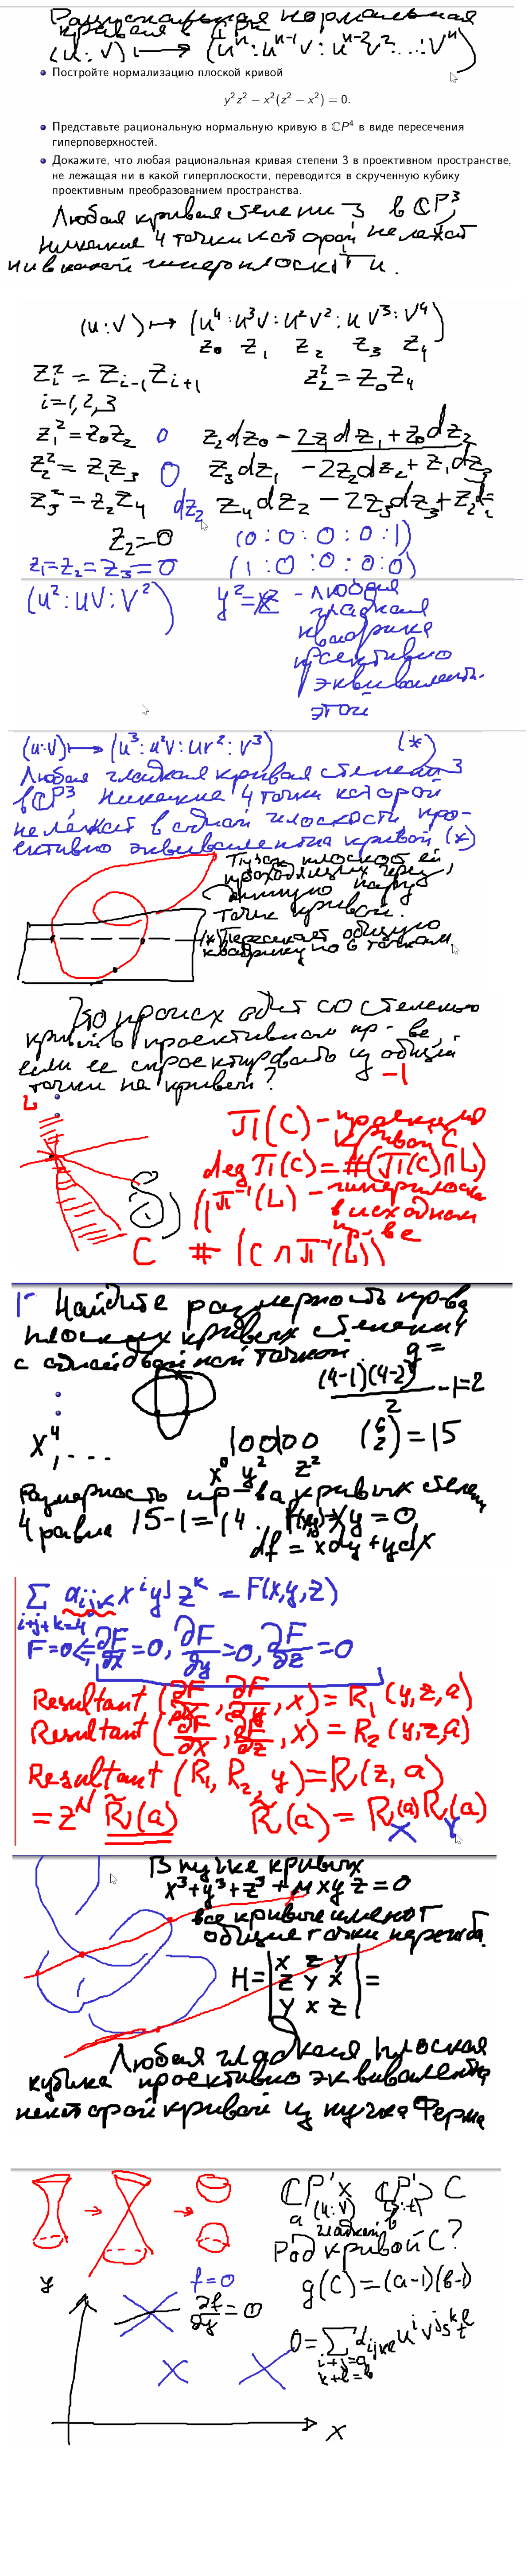 Рациональная нормальная
кривая в CPⁿ
(u:v) ⟼ (uⁿ:uⁿ⁻¹v:uⁿ⁻²v²:...:vⁿ)
• Постройте нормализацию плоской кривой
y²z² − x²(z² − x²) = 0.
• Представьте рациональную нормальную кривую в ℂP⁴ в виде пересечения
гиперповерхностей.
• Докажите, что любая рациональная кривая степени 3 в проективном пространстве,
не лежащая ни в какой гиперплоскости, переводится в скрученную кубику
проективным преобразованием пространства.
Любая кривая степени 3 в CP³,
никакие 4 точки которой не лежат
ни в какой гиперплоскости.
(u:v) ↦ (u⁴:u³v:u²v²:uv³:v⁴)
z₀ z₁ z₂ z₃ z₄
zᵢ² = zᵢ₋₁zᵢ₊₁ z₂² = z₀z₄
i=1,2,3
z₁² = z₀z₂ 0 z₂dz₀ − 2z₁dz₁ + z₀dz₂
z₂² = z₁z₃ 0 z₃dz₁ − 2z₂dz₂ + z₁dz₃
z₃² = z₂z₄ dz₂ z₄dz₂ − 2z₃dz₃ + z₂d
z₂=0 (0:0:0:0:1)
z₁=z₂=z₃=0 (1:0:0:0:0)
(u²:uv:v²) y²=xz - любая
гладкая
квадрика
проективно
эквивалентн.
этой
(u:v)⟼(u³:u²v:uv²:v³) (*)
Любая гладкая кривая степени 3
в CP³, никакие 4 точки которой
не лежат в одной плоскости про-
ективно эквивалентна кривой (*)
Пучок плоскостей,
проходящих через
данную пару
точек кривой.
(*) Пересекает общую
квадрику по 6 точкам
Что происходит со степенью
кривой в проективном пр-ве,
если ее спроектировать из общей
точки на кривой?
−1
L
π(C) - проекция
кривой C
deg π(C) = #(π(C)∩L)
π⁻¹(L) - гиперплоск
в исходном
пр-ве
C # (C∩π⁻¹(L))
Найдите размерность пр-ва
плоских кривых степени 4
с одной двойной точкой
g =
(4-1)(4-2)/2 - 1 = 2
x⁴, ... 100100 (6 2) = 15
x⁰ y² z²
Размерность пр-ва кривых степени
4 равна 15-1=14. f(x,y)=xy=0
df = xdy+ydx
Σ aᵢⱼₖ xⁱyʲzᵏ = F(x,y,z)
i+j+k=4
F=0 ⇐ ∂F/∂x=0, ∂F/∂y=0, ∂F/∂z=0
Resultant (∂F/∂x, ∂F/∂y, x) = R₁(y,z,a)
Resultant (∂F/∂x, ∂F/∂z, x) = R₂(y,z,a)
Resultant (R₁, R₂, y) = R(z,a)
= zᴺ R̃(a) R̃(a) = R₁(a)R(a)
X Y
В пучке кривых
x³+y³+z³+μxyz=0
все кривые имеют
общие точки перегиба.
H = |x z y|
|z y x| =
|y x z|
Любая гладкая плоская
кубика проективно эквивалентна
некоторой кривой из пучка Ферма
CP¹ × CP¹ ⊃ C
a (u:v) (s:t)
гладкой b
Род кривой C?
g(C)=(a-1)(b-1)
y f=0
∂f/∂y=0
0=Σ αᵢⱼₖₗ uⁱvʲsᵏtˡ
i+j=a
k+l=b
x